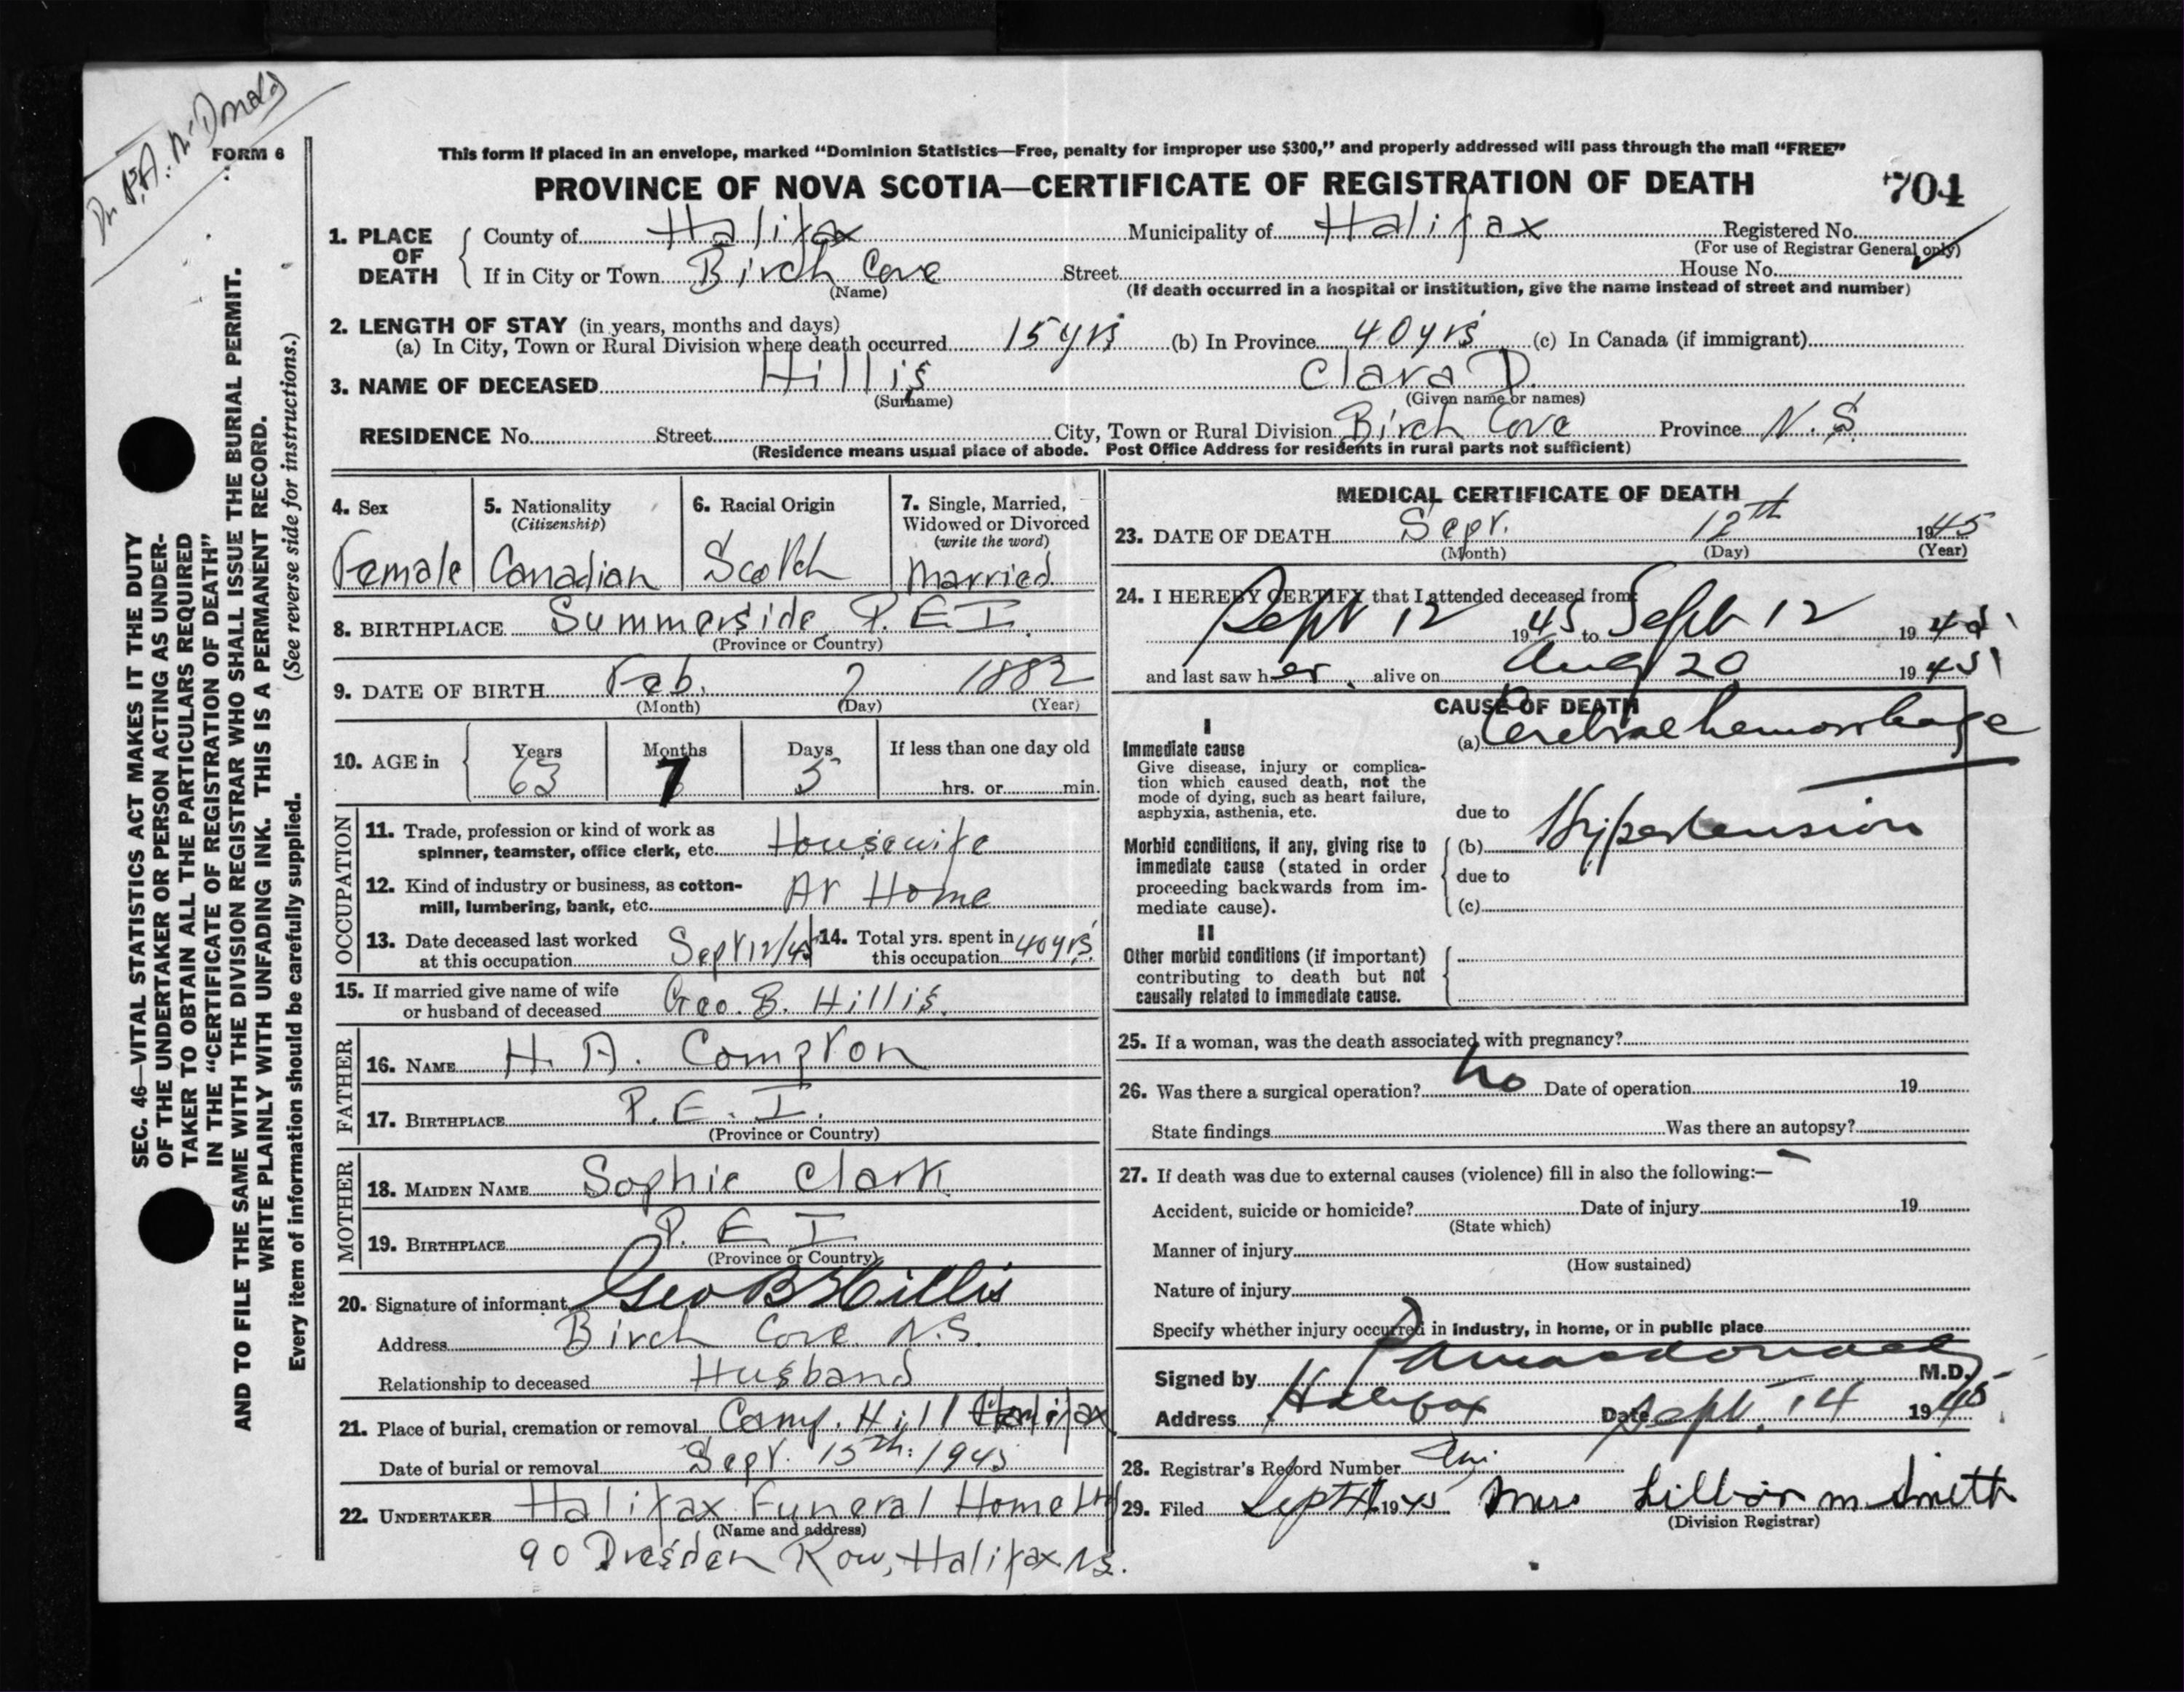 Dr. P.A. McDonald
FORM 6
This form if placed in an envelope, marked "Dominion Statistics—Free, penalty for improper use $300," and properly addressed will pass through the mail "FREE"
PROVINCE OF NOVA SCOTIA—CERTIFICATE OF REGISTRATION OF DEATH
704
1. PLACE OF DEATH
County of Halifax Municipality of Halifax Registered No.
(For use of Registrar General only)
If in City or Town Birch Cove Street House No.
(Name) (If death occurred in a hospital or institution, give the name instead of street and number)
2. LENGTH OF STAY (in years, months and days)
(a) In City, Town or Rural Division where death occurred 15 yrs (b) In Province 40 yrs (c) In Canada (if immigrant)
3. NAME OF DECEASED Hillis Clara D.
(Surname) (Given name or names)
RESIDENCE No. Street City, Town or Rural Division Birch Cove Province N.S.
(Residence means usual place of abode. Post Office Address for residents in rural parts not sufficient)
4. Sex Female
5. Nationality (Citizenship) Canadian
6. Racial Origin Scotch
7. Single, Married, Widowed or Divorced (write the word) Married
8. BIRTHPLACE Summerside P.E.I.
(Province or Country)
9. DATE OF BIRTH Feb. 7 1882
(Month) (Day) (Year)
10. AGE in Years 63 Months 7 Days 5 If less than one day old
hrs. or min.
OCCUPATION
11. Trade, profession or kind of work as
spinner, teamster, office clerk, etc. Housewife
12. Kind of industry or business, as cotton-
mill, lumbering, bank, etc. At Home
13. Date deceased last worked
at this occupation Sept 12/45
14. Total yrs. spent in
this occupation 40 yrs
15. If married give name of wife
or husband of deceased Geo. B. Hillis
FATHER
16. NAME H. A. Compton
17. BIRTHPLACE P.E.I.
(Province or Country)
MOTHER
18. MAIDEN NAME Sophie Clark
19. BIRTHPLACE P.E.I
(Province or Country)
20. Signature of informant Geo B Hillis
Address Birch Cove N.S.
Relationship to deceased Husband
21. Place of burial, cremation or removal Camp Hill Halifax
Date of burial or removal Sept. 15th 1945
22. UNDERTAKER Halifax Funeral Home Ltd
(Name and address)
90 Dresden Row, Halifax N.S.
MEDICAL CERTIFICATE OF DEATH
23. DATE OF DEATH Sept. 12th 1945
(Month) (Day) (Year)
24. I HEREBY CERTIFY that I attended deceased from:
Sept 12 1945 to Sept 12 1945
and last saw her alive on Aug 20 1945
CAUSE OF DEATH
I
Immediate cause
Give disease, injury or complica-
tion which caused death, not the
mode of dying, such as heart failure,
asphyxia, asthenia, etc.
(a) Cerebral hemorrhage
due to
Morbid conditions, if any, giving rise to
immediate cause (stated in order
proceeding backwards from im-
mediate cause).
(b) Hypertension
due to
(c)
II
Other morbid conditions (if important)
contributing to death but not
causally related to immediate cause.
25. If a woman, was the death associated with pregnancy?
26. Was there a surgical operation? No Date of operation 19
State findings Was there an autopsy?
27. If death was due to external causes (violence) fill in also the following:—
Accident, suicide or homicide? Date of injury 19
(State which)
Manner of injury
(How sustained)
Nature of injury
Specify whether injury occurred in industry, in home, or in public place
Signed by P A Macdonald M.D.
Address Halifax Date Sept. 14 1945
28. Registrar's Record Number
29. Filed Sept 1945 Mrs Lillian M Smith
(Division Registrar)
SEC. 46—VITAL STATISTICS ACT MAKES IT THE DUTY
OF THE UNDERTAKER OR PERSON ACTING AS UNDER-
TAKER TO OBTAIN ALL THE PARTICULARS REQUIRED
IN THE "CERTIFICATE OF REGISTRATION OF DEATH"
AND TO FILE THE SAME WITH THE DIVISION REGISTRAR WHO SHALL ISSUE THE BURIAL PERMIT.
WRITE PLAINLY WITH UNFADING INK. THIS IS A PERMANENT RECORD.
Every item of information should be carefully supplied. (See reverse side for instructions.)